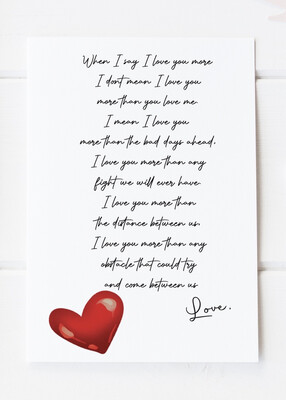 When I say I love you more
I dont mean I love you
more than you love me.
I mean I love you
more than the bad days ahead,
I love you more than any
fight we will ever have.
I love you more than
the distance between us.
I love you more than any
obstacle that could try
and come between us
Love.